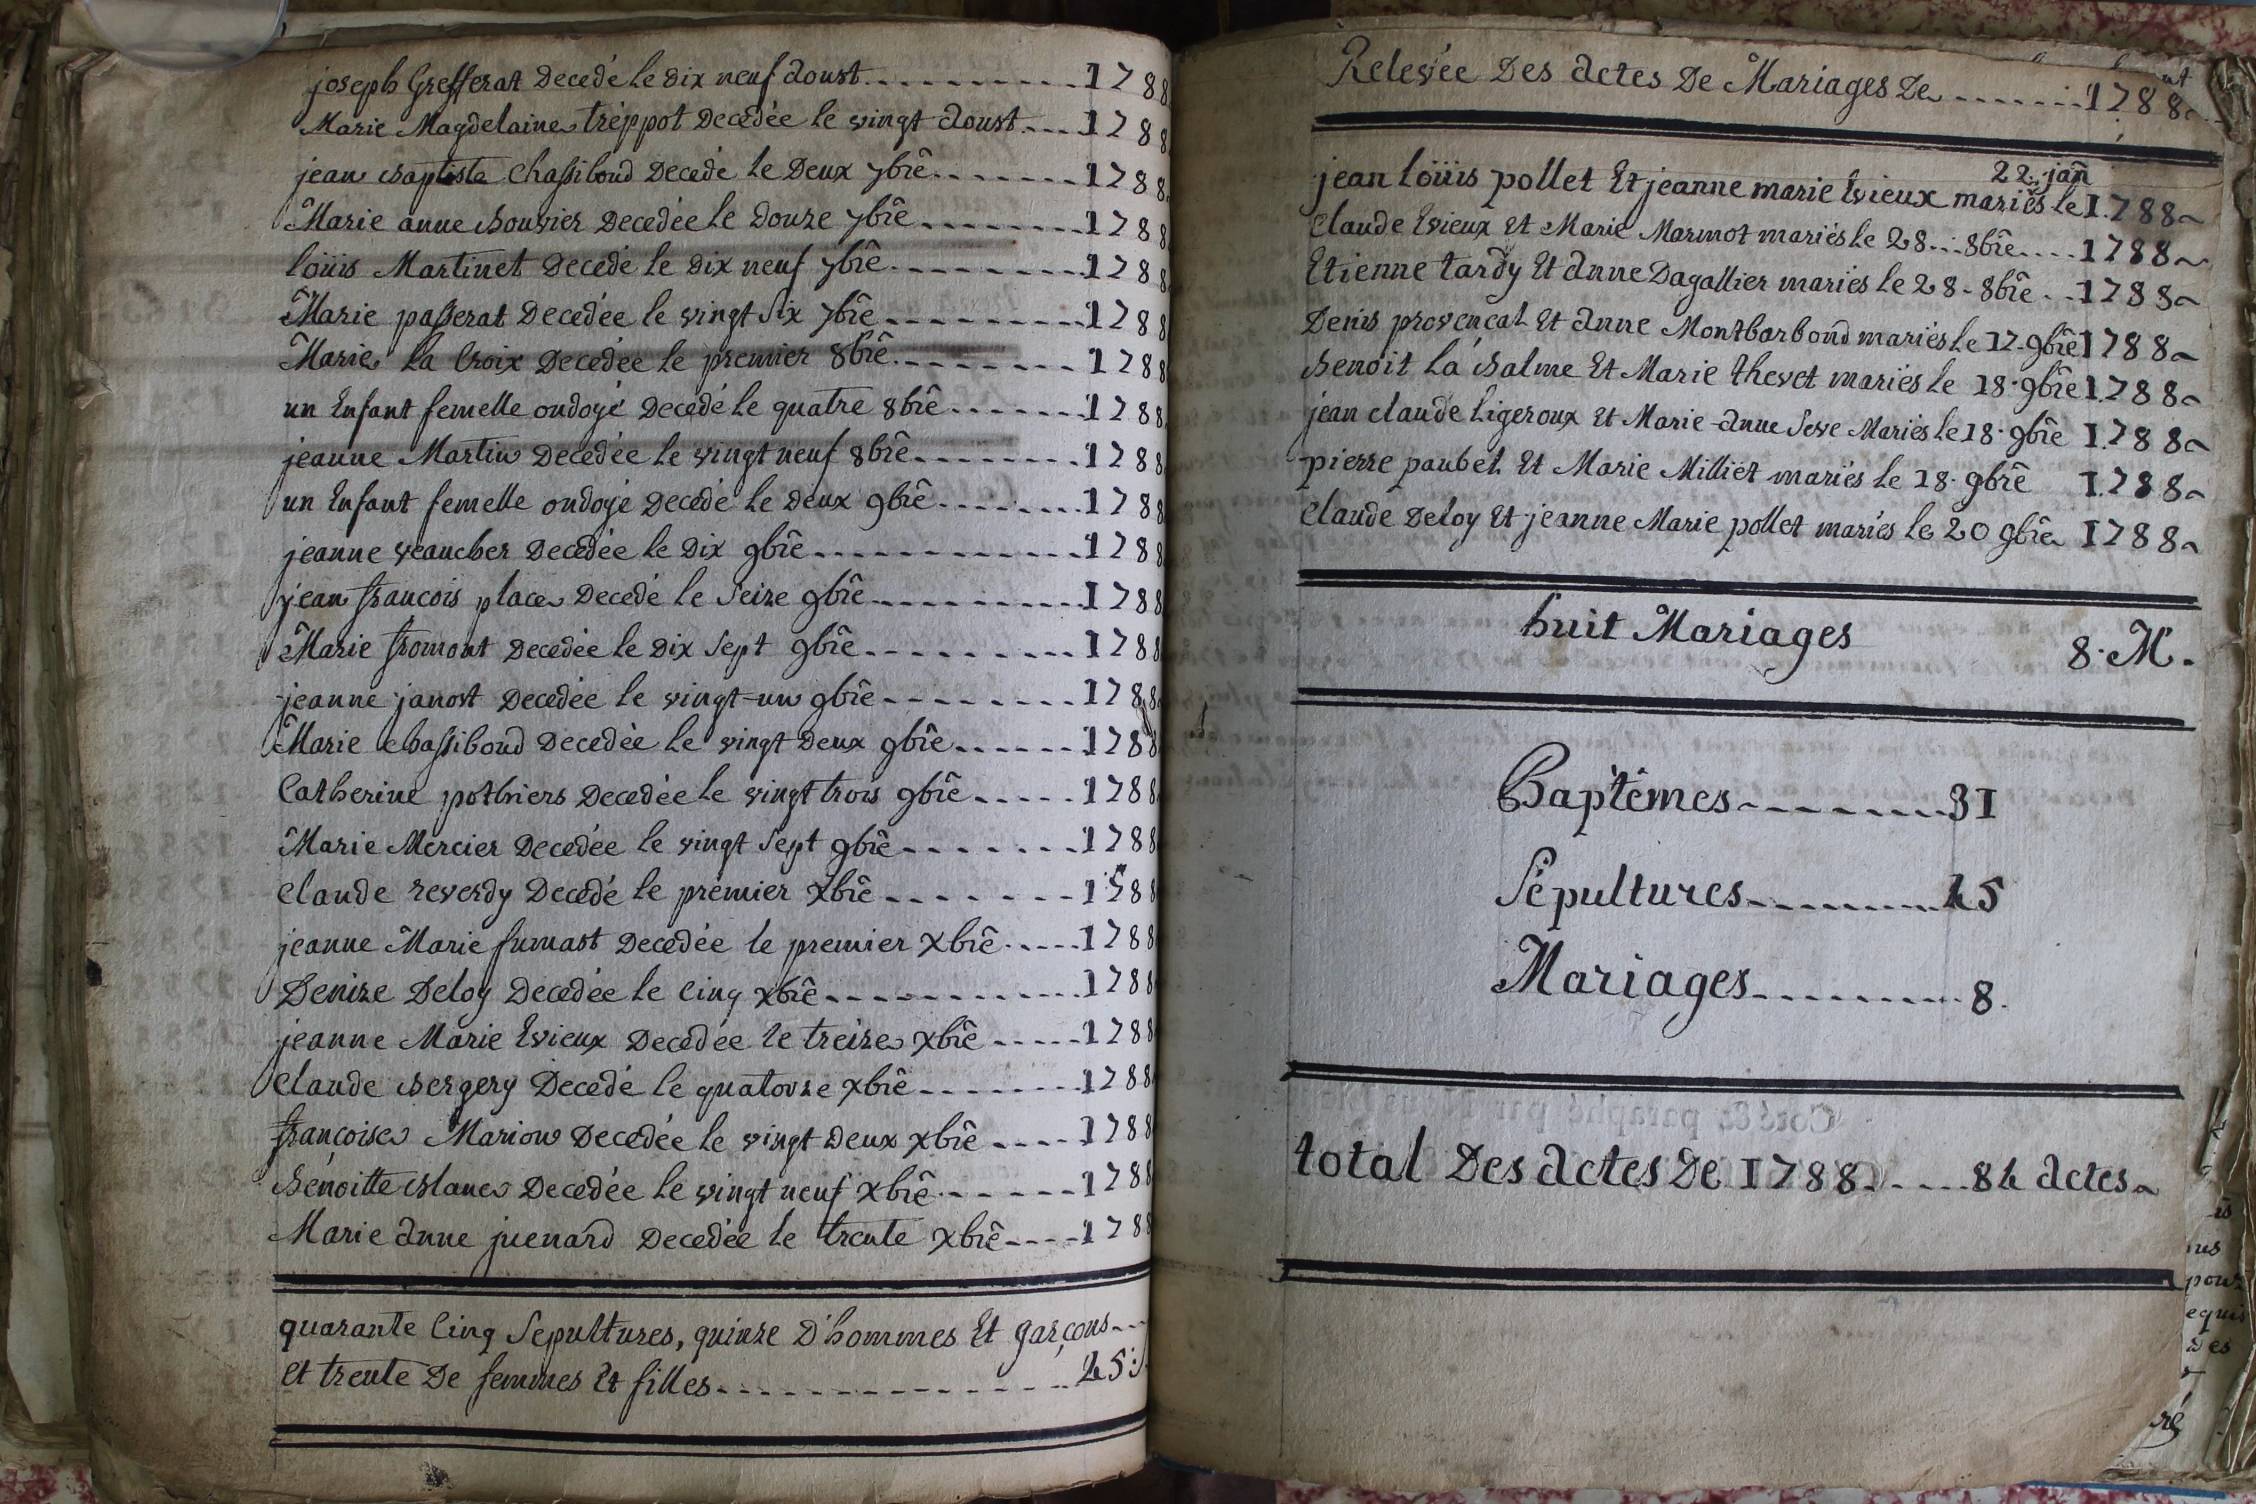 joseph Grefferat Decedé le dix neuf aoust 1788
Marie Magdelaine tréppot Decedée le vingt aoust 1788
jean Baptiste Chassiboud Decedé le Deux 7brê 1788
Marie anne Bouvier Decedée le Douze 7brê 1788
loüis Martinet Decedé le dix neuf 7brê 1788
Marie passerat Decedée le vingt Six 7brê 1788
Marie la Croix Decedée le premier 8brê 1788
un Enfant femelle ondoyé Decedé le quatre 8brê 1788
jeanne Martin Decedée le vingt neuf 8brê 1788
un Enfant femelle ondoyé Decedé le Deux 9brê 1788
jeanne veaucher Decedée le Dix 9brê 1788
jean francois place Decedé le Seize 9brê 1788
Marie fromont Decedée le Dix Sept 9brê 1788
jeanne janost Decedée le vingt-un 9brê 1788
Marie chassiboud Decedée le vingt Deux 9brê 1788
Catherine pothiers Decedée le vingt trois 9brê 1788
Marie Mercier Decedée le vingt Sept 9brê 1788
Claude reverdy Decedé le premier Xbrê 1788
jeanne Marie fumast Decedée le premier Xbrê 1788
Denize Deloy Decedée le Cinq Xbrê 1788
jeanne Marie Evieux Decedée le treize Xbrê 1788
Claude Bergery Decedé le quatorze Xbrê 1788
françoise Marion Decedée le vingt Deux Xbrê 1788
Bénoitte Blanc Decedée le vingt neuf Xbrê 1788
Marie anne juenard Decedée le trente Xbrê 1788
quarante Cinq Sepultures, quinze D'hommes Et garçons
et trente De femmes Et filles 45:S
Relevée Des actes De Mariages De 1788
22. jañ
jean loüis pollet Et jeanne marie Evieux mariés le 1788
Claude Evieux Et Marie Marmot mariés le 28 8brê 1788
Etienne tardy Et anne Dagallier mariés le 28 - 8brê 1788
Denis provençal Et anne Montbarbond mariés le 17 - 9brê 1788
Benoit la Balme Et Marie thevet mariés le 18 · 9brê 1788
jean claude ligeroux Et Marie-anne Seve Mariés le 18 · 9brê 1788
pierre paubel Et Marie Milliet mariés le 18 · 9brê 1788
Claude Deloy Et jeanne Marie pollet mariés le 20 9brê 1788
huit Mariages 8·M.
Baptêmes 31
Sépultures 45
Mariages 8.
total Des actes De 1788 84 actes